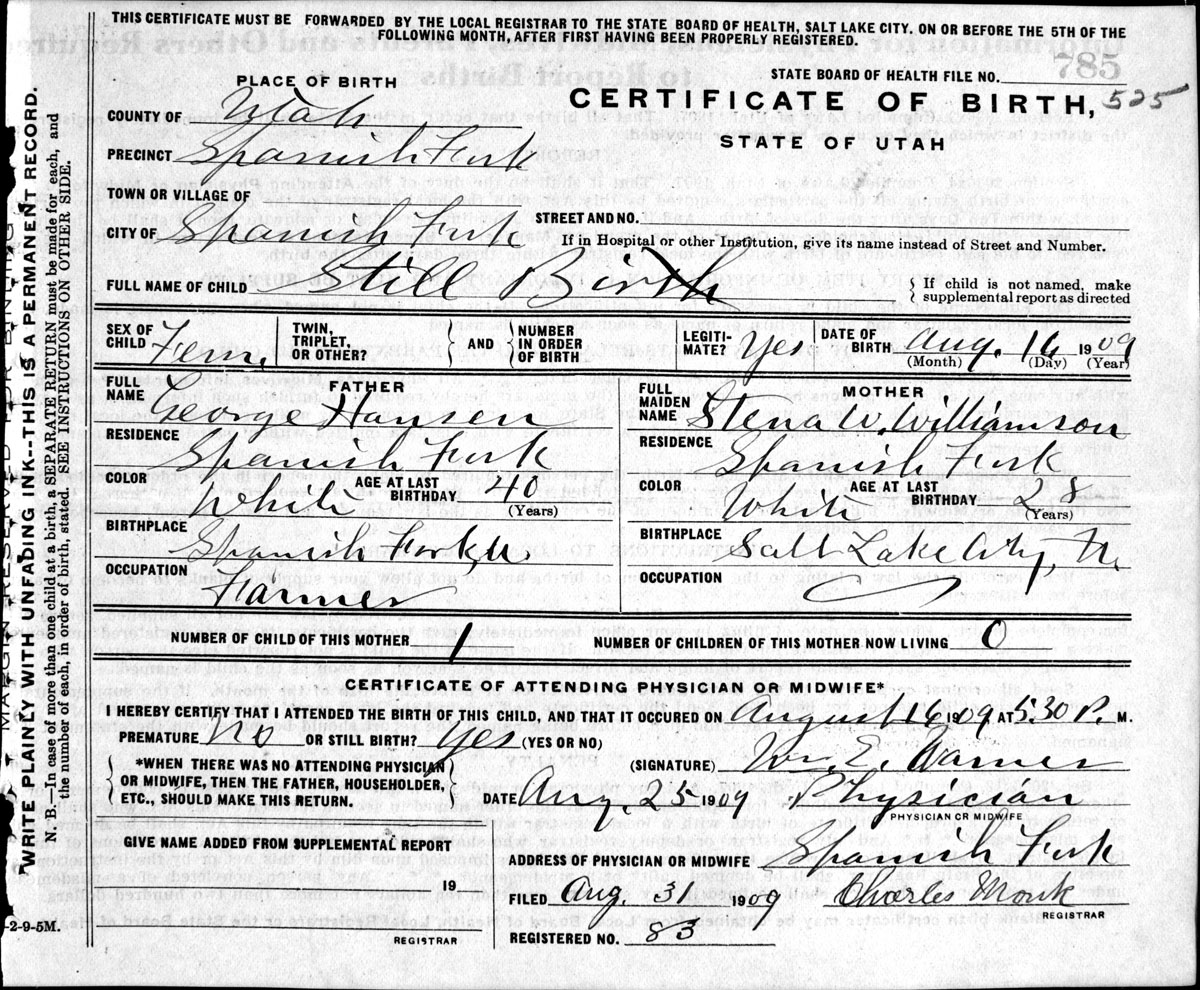 THIS CERTIFICATE MUST BE FORWARDED BY THE LOCAL REGISTRAR TO THE STATE BOARD OF HEALTH, SALT LAKE CITY. ON OR BEFORE THE 5TH OF THE
FOLLOWING MONTH, AFTER FIRST HAVING BEEN PROPERLY REGISTERED.
785
PLACE OF BIRTH
STATE BOARD OF HEALTH FILE NO.
COUNTY OF Utah
CERTIFICATE OF BIRTH, 525
PRECINCT Spanish Fork
STATE OF UTAH
TOWN OR VILLAGE OF
CITY OF Spanish Fork STREET AND NO.
If in Hospital or other Institution, give its name instead of Street and Number.
FULL NAME OF CHILD Still Birth If child is not named, make
supplemental report as directed
SEX OF CHILD Fem. TWIN, TRIPLET, OR OTHER? AND NUMBER IN ORDER OF BIRTH LEGITI- MATE? Yes DATE OF BIRTH Aug. 16 1909
(Month) (Day) (Year)
FATHER
FULL NAME George Hansen
RESIDENCE Spanish Fork
COLOR White AGE AT LAST BIRTHDAY 40
(Years)
BIRTHPLACE Spanish Fork, U.
OCCUPATION Farmer
MOTHER
FULL MAIDEN NAME Stena W. Williamson
RESIDENCE Spanish Fork
COLOR White AGE AT LAST BIRTHDAY 28
(Years)
BIRTHPLACE Salt Lake City,
OCCUPATION
NUMBER OF CHILD OF THIS MOTHER 1 NUMBER OF CHILDREN OF THIS MOTHER NOW LIVING 0
CERTIFICATE OF ATTENDING PHYSICIAN OR MIDWIFE*
I HEREBY CERTIFY THAT I ATTENDED THE BIRTH OF THIS CHILD, AND THAT IT OCCURED ON August 16 1909 AT 5.30 P. M.
PREMATURE No OR STILL BIRTH? Yes (YES OR NO)
*WHEN THERE WAS NO ATTENDING PHYSICIAN
OR MIDWIFE, THEN THE FATHER, HOUSEHOLDER,
ETC., SHOULD MAKE THIS RETURN.
(SIGNATURE) Wm. E. Warner
DATE Aug. 25 1909 Physician
PHYSICIAN OR MIDWIFE
GIVE NAME ADDED FROM SUPPLEMENTAL REPORT
19
REGISTRAR
ADDRESS OF PHYSICIAN OR MIDWIFE Spanish Fork
FILED Aug. 31 1909 Charles Monk
REGISTRAR
REGISTERED NO. 83
MARGIN RESERVED FOR BINDING
WRITE PLAINLY WITH UNFADING INK--THIS IS A PERMANENT RECORD.
N. B.—In case of more than one child at a birth, a SEPARATE RETURN must be made for each, and
the number of each, in order of birth, stated. SEE INSTRUCTIONS ON OTHER SIDE.
-2-9-5M.